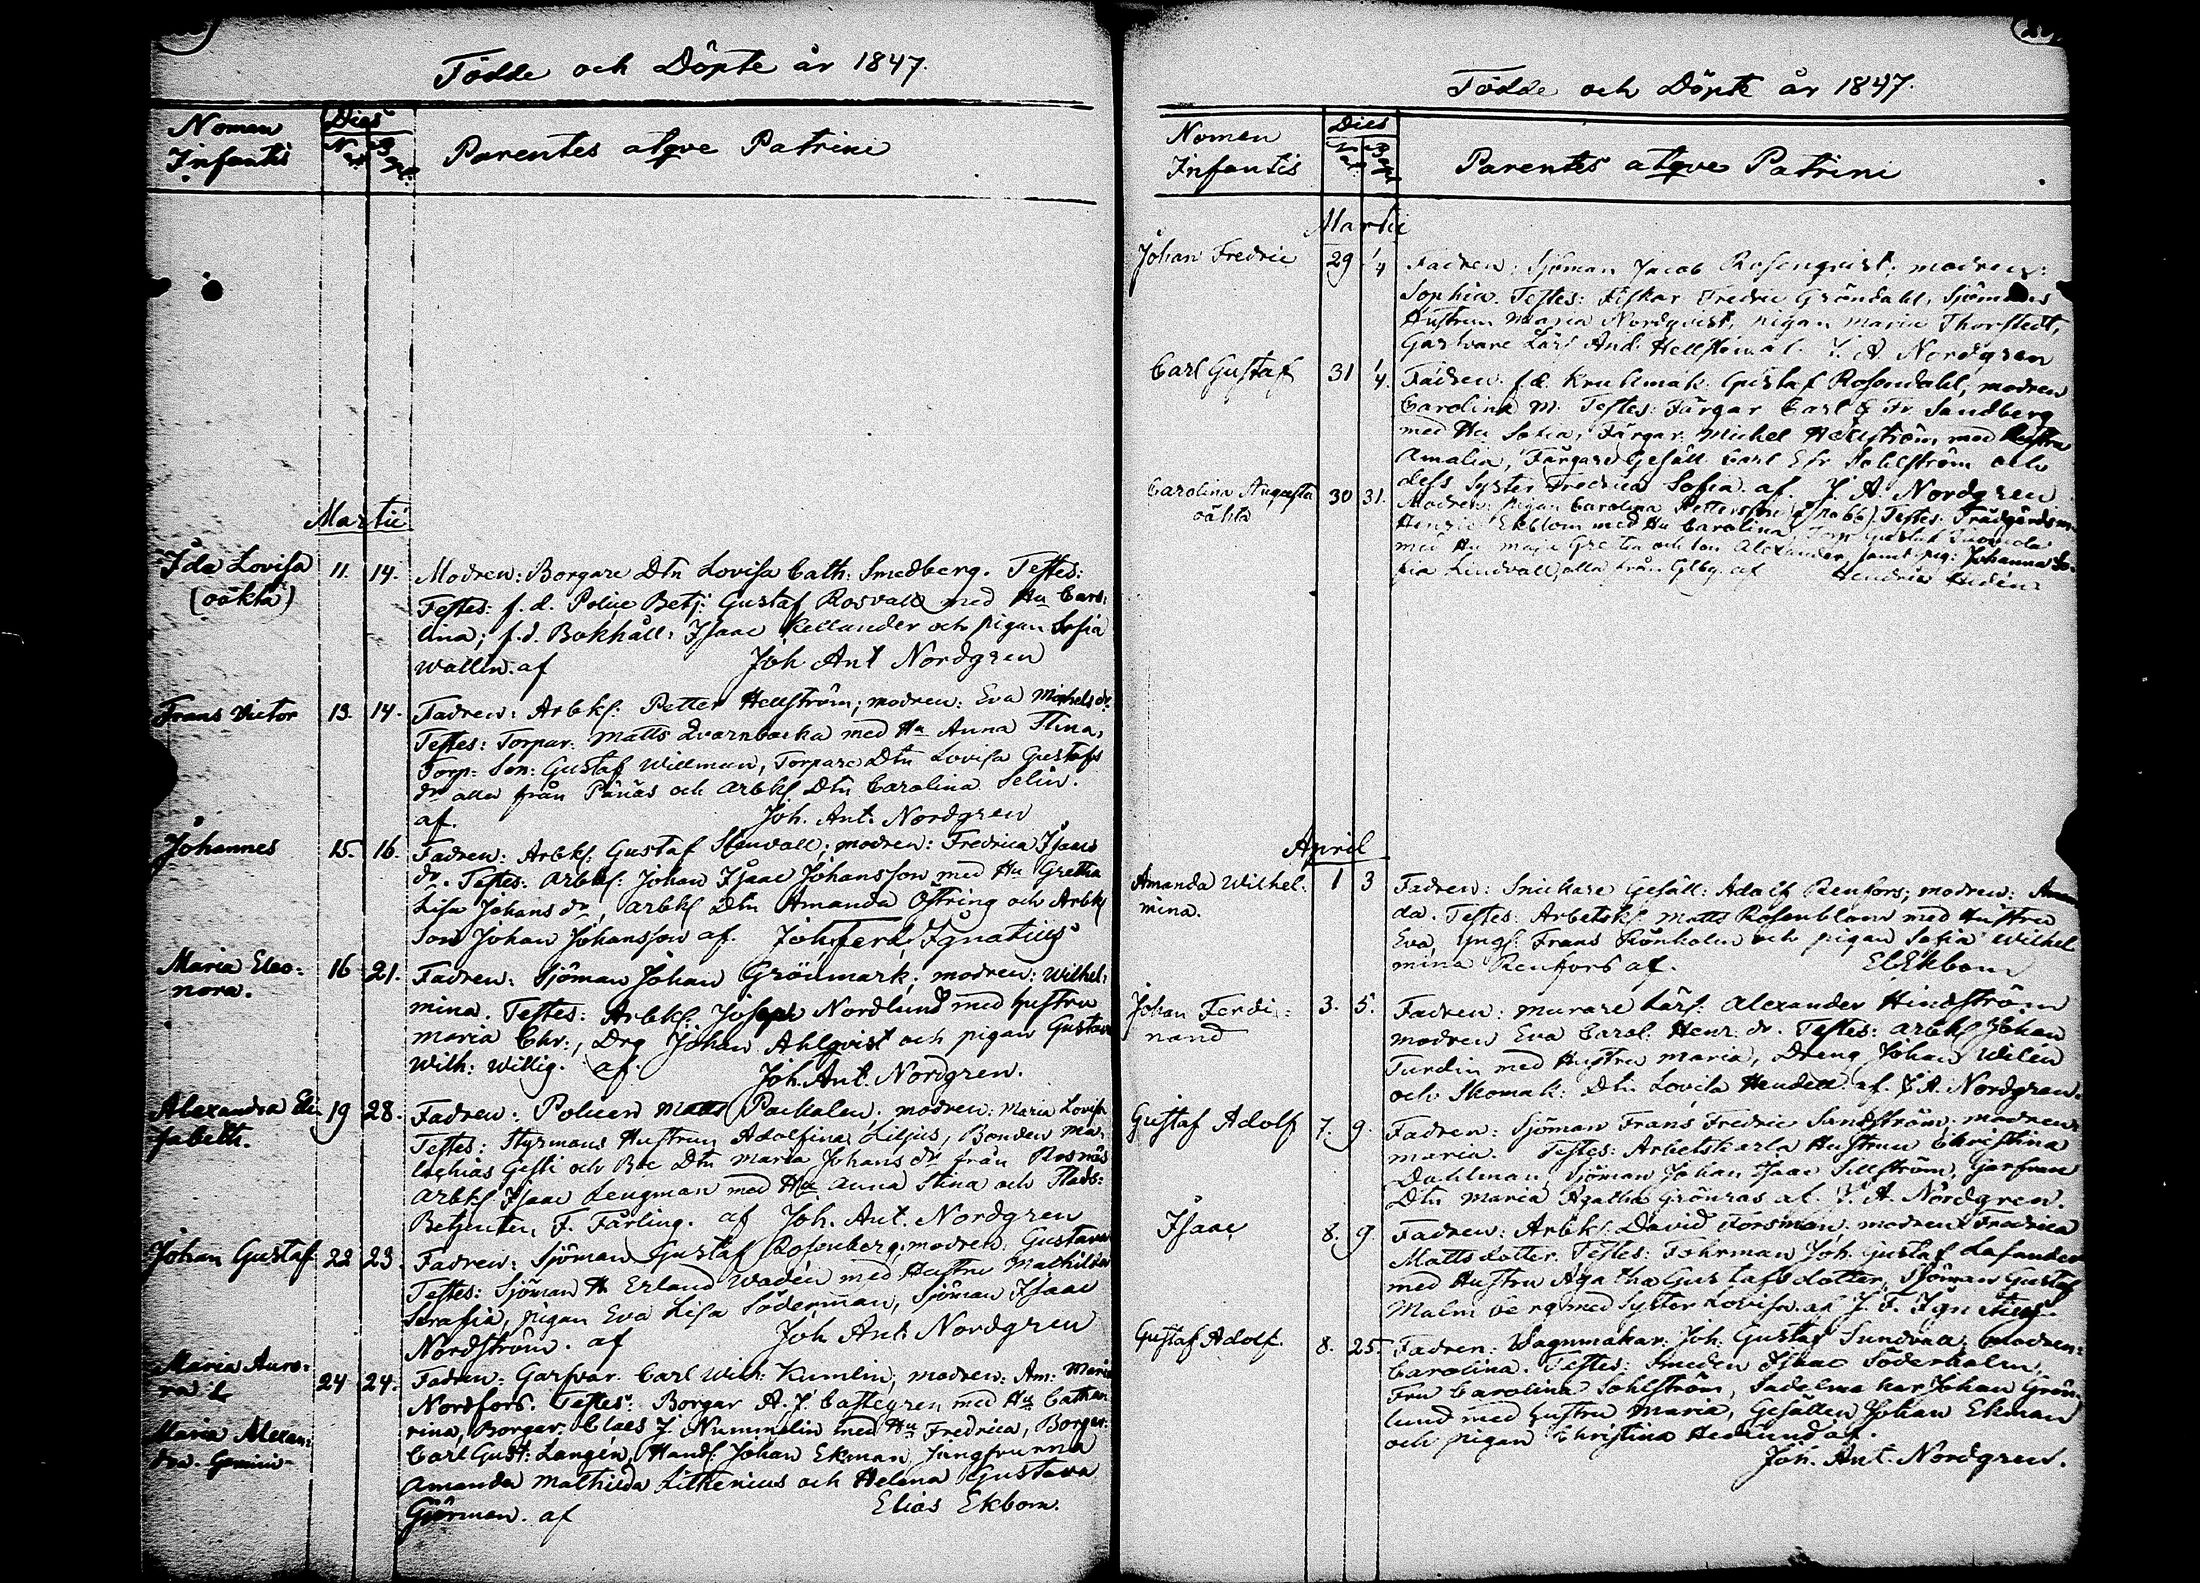 Födde och Döpte år 1847.
Nomen
Infantis
Dies
N
at.
B
apt.
Parentes atqve Patrini
Martii
Ida Lovisa
(oäkta)
11. 14.
Modren: Borgare Dtn Lovisa Cath: Smedberg. Testes:
Testes: f.d. Police Betj: Gustaf Rosvall med Hu Caro:
lina; f.d. Bokhåll: Isaac Kellander och pigan Sofia
Wallin. af Joh Ant Nordgren
Frans Victor 13. 14.
Fadren: Arbks: Petter Hellström; modren: Eva Michelsdr
Testes: Torpar: Matts Qvarnbacka med Hu Anna Stina,
Torp: Son: Gustaf Willman, Torpare Dtn Lovisa Gustafs
dr alla från Pänäs och Arbks Dtn Carolina Selin.
af. Joh. Ant. Nordgren
Johannes 15. 16.
Fadren: Arbks: Gustaf Stenvall; modren: Fredrica Isaacs
dr. Testes: Arbks: Johan Isaac Johansson med Hu Gretha
Lisa Johansdr, Arbks Dtn Amanda Östring och Arbks
Son Johan Johansson af. Joh. Ferd. Ignatius
Maria Eleo:
nora.
16 21.
Fadren: Sjöman Johan Grönmark; modren: Wilhel:
mina. Testes: Arbks Joseph Nordlund med hustru
Maria Chr:, Drg Johan Ahlqvist och pigan Gustava
Wilh: Willig. af. Joh. Ant. Nordgren.
Alexandra Eli
sabeth.
19 28.
Fadren: Policen Matts Packalen; modren: Maria Lovisa
Testes: Styrmans Hustrun Adolfina Liljus, Bonden Ma:
lachias Gesti och Bde Dtn Maria Johans dr från Rosnäs
Arbks Isaac Lengman med Hu Anna Stina och Stads:
Betjenten, F. Färling. af Joh. Ant. Nordgren
Johan Gustaf 22 23.
Fadren: Sjöman Gustaf Rosenberg; modren: Gustava
Testes: Sjöman Erland Wadén med Hustru Mathilda
Serafia, pigan Eva Lisa Söderman, Sjöman Isaac
Nordström. af Joh Ant: Nordgren
Maria Auro:
ra &
Maria Alexan:
dra. Gemini
24 24.
Fadren: Garfvar. Carl Wilh: Kumlin, modren: Am: Maria
Nordfors. Testes: Borgar A. J. Castegren med Hu Catha
rina, Borgar: Claes J. Nummelin med Hu Fredrica, Borgar:
Carl Gust: Langén, Handl Johan Ekman Jungfrurna
Amanda Mathilda Lithenius och Helena Gustava
Görman. af Elias Ekbom.
Födde och Döpte år 1847.
Nomen
Infantis
Dies
Parentes atqve Patrini
Martii
Johan Fredric 29 1/4
Fadren: Sjöman Jacob Rosenqvist; modren:
Sophia. Testes: Fiskar Fredric Gröndahl, Sjömans
Hustrun Maria Nordqvist, pigan Maria Thorstedt,
Garfvare Lärl And. Hellström af. J. A. Nordgren
Carl Gustaf 31 1/4.
Fadren. f.d. Krukmak: Gustaf Rosendahl, modren
Carolina M. Testes: Färgar Carl Fr. Sandberg
med Hu Sofia, Färgar: Michel Hellström, med Hustru
Amalia, Färgare Gesäll: Carl Efr Sahlström och
dess Syster Fredrica Sofia. af. J. A. Nordgren
Carolina Augusta
oäkta
30 31.
Modren: pigan Carolina Pettersson Testes: Trädgårdsm:
Henric Ekblom med Hu Carolina, Torp: Gustaf
med Hu Maja Gretha och son Alexander, samt pig: Johanna So:
fia Lindvall, alla från Glby. af Hendric Hedén
April
Amanda Wilhel:
mina.
1 3
Fadren: Snickare Gesäll: Adolf Renfors; modren: Aman
da. Testes: Arbetsk: Matts Rosenblom med Hustru
Eva, yngl: Frans Rönholm och pigan Sofia Wilhel
mina Renfors af. El Ekbom
Johan Ferdi:
nand
3. 5.
Fadren: Murare Lärl: Alexander Hindström
modren Eva Carol: Henr: dr. Testes: Arbks Johan
Turdin med Hustru Maria, Dreng Johan Wilén
och Skomak: Dtn Lovisa Hendell. af. J. A. Nordgren.
Gustaf Adolf 7. 9.
Fadren: Sjöman Frans Fredric Sundström; modren:
Maria. Testes: Arbetskarls Hustrun Christina
Dahlman, Sjöman Johan Isaac Sillström, Garfvare
Dtn Maria Agatha Grönroos af. J. A. Nordgren.
Isaac 8. 9.
Fadren: Arbks. David Forsman, modren Fredrica
Mattsdotter. Testes: Fohrman Joh. Gustaf Lasander
med Hustru Agatha Gustafs dotter, Sjöman Gustaf
Malmberg med Syster Lovisa. af J. F. Ignatius
Gustaf Adolf. 8. 25.
Fadren: Vagnmakar: Joh: Gustaf Sundvall; modren:
Carolina. Testes: Smeden Isaac Söderholm,
Fru Carolina Sohlström, Sadelmakar Johan Grön
lund med hustru Maria, Gesällen Johan Ekman
och pigan Christina Hedlund af.
Joh. Ant. Nordgren.